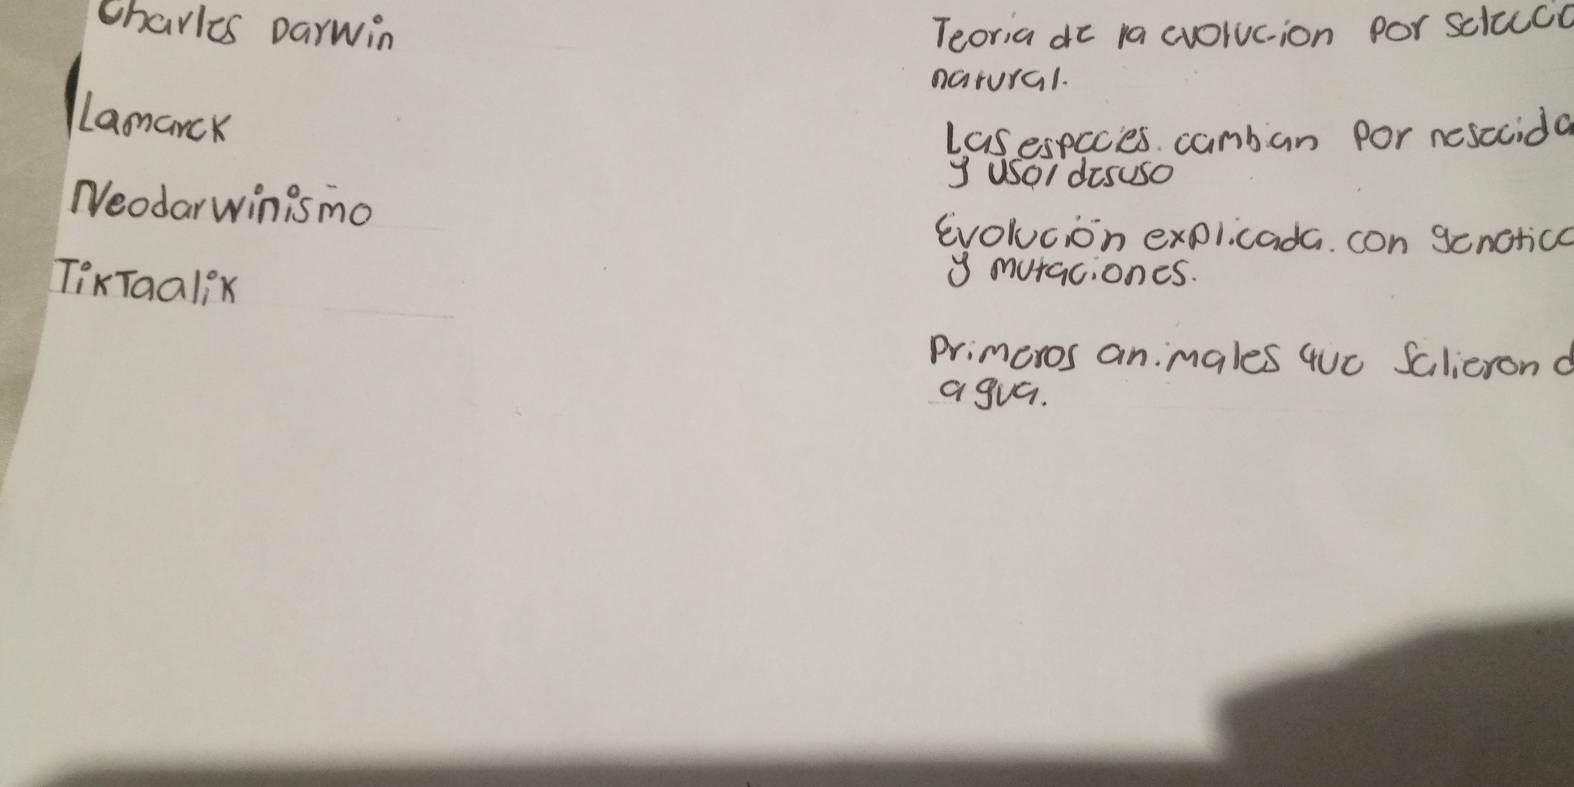 Charles Darwin
Teoria de la evolucion por
natural.
Lamarck
Las especies cambian por
y uso/desuso
Neodarwinismo
Evolución explicada. con
y mutaciones.
TikTaalik
Primeros animales que salieron
agua.